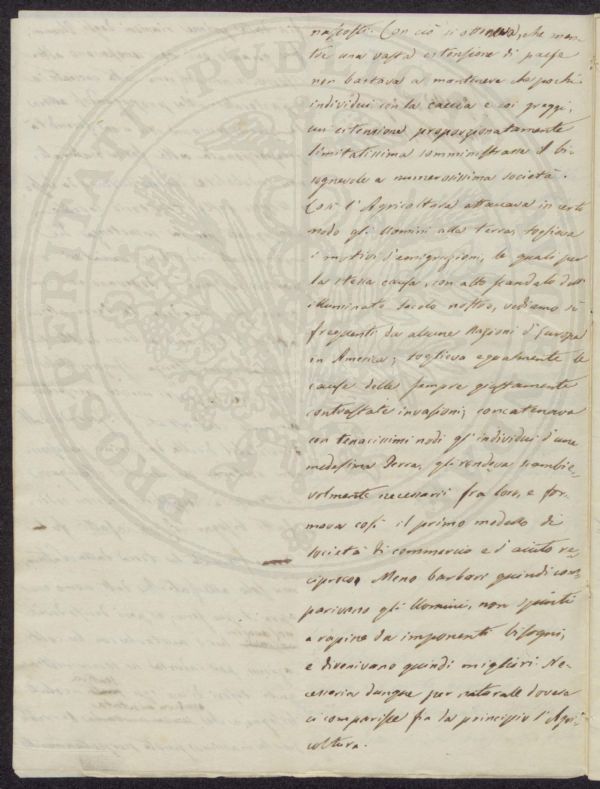 nascosti. Con ciò si otteneva, che men-
tre una vasta estensione di paese
non bastava a mantenere che pochi
individui con la caccia e coi greggi,
un'estensione proporzionatamente
limitatissima somministrasse il bi-
sognevole a numerosissima società.
Così l'Agricoltura attaccava in certo
modo gli Uomini alla terra, toglieva
i motivi d'emigrazioni, le quali per
la stessa causa, con alto scandalo dell'
illuminato secolo nostro, vediamo sì
frequenti da alcune Nazioni d'Europa
in America; toglieva egualmente le
cause delle sempre giustamente
contrastate invasioni; concatenava
con tenacissimi nodi gl'individui d'una
medesima Terra, gli rendeva scambie-
volmente necessarii fra loro, e for-
mava così il primo modello di
società di commercio e d'aiuto re-
ciproco. Meno barbari quindi com-
parivano gli Uomini, non spinti
a rapine da imponenti bisogni,
e divenivano quindi migliori. Ne-
cessaria dunque per naturale dovere
ci comparisce fra da principio l'Agri-
coltura.
PROSPERITATI PUBLICAE